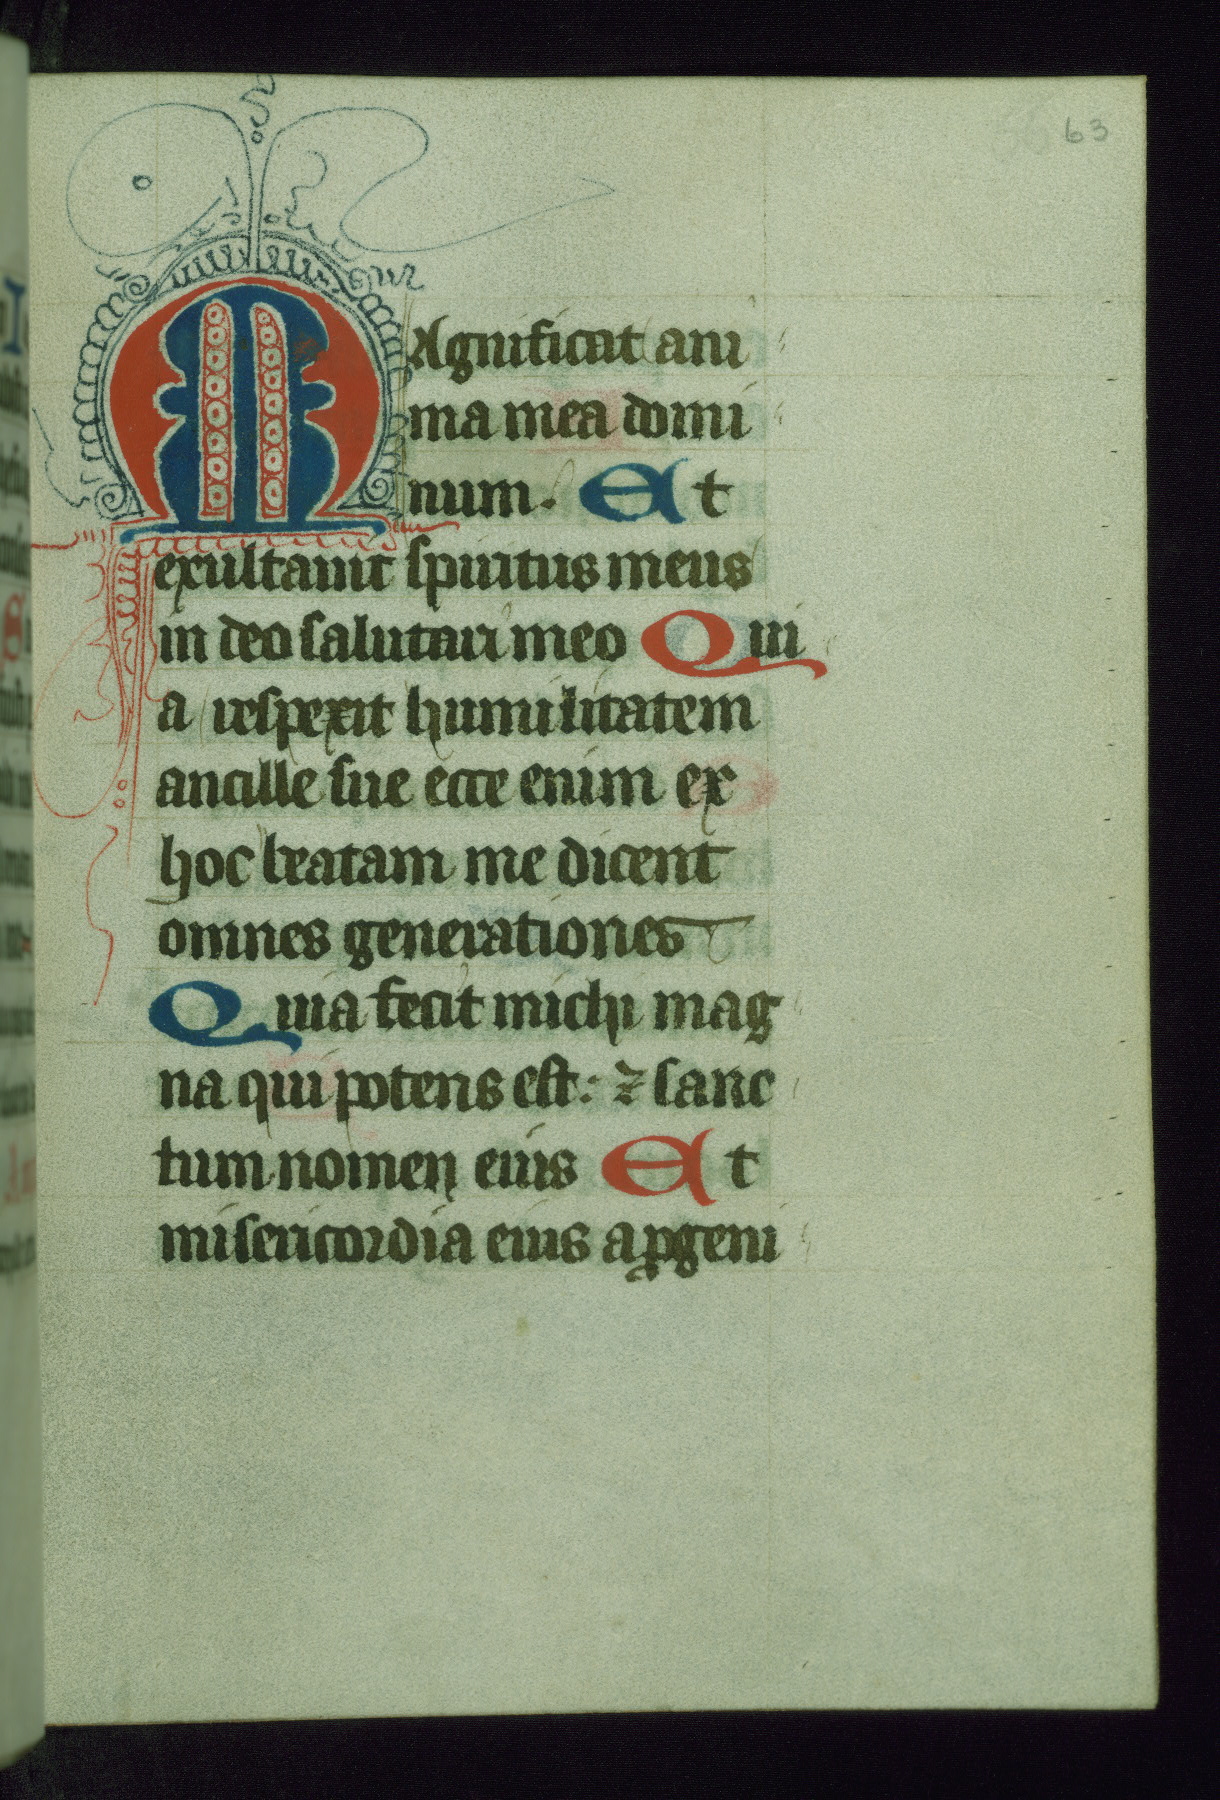 63
MAgnificat ani
ma mea domi
num. Et
exultauit spiritus meus
in deo salutari meo Qui
a respexit humilitatem
ancille sue ecce enim ex
hoc beatam me dicent
omnes generationes
Quia fecit michi mag
na qui potens est: ⁊ sanc
tum nomen eius Et
misericordia eius a ꝓgeni